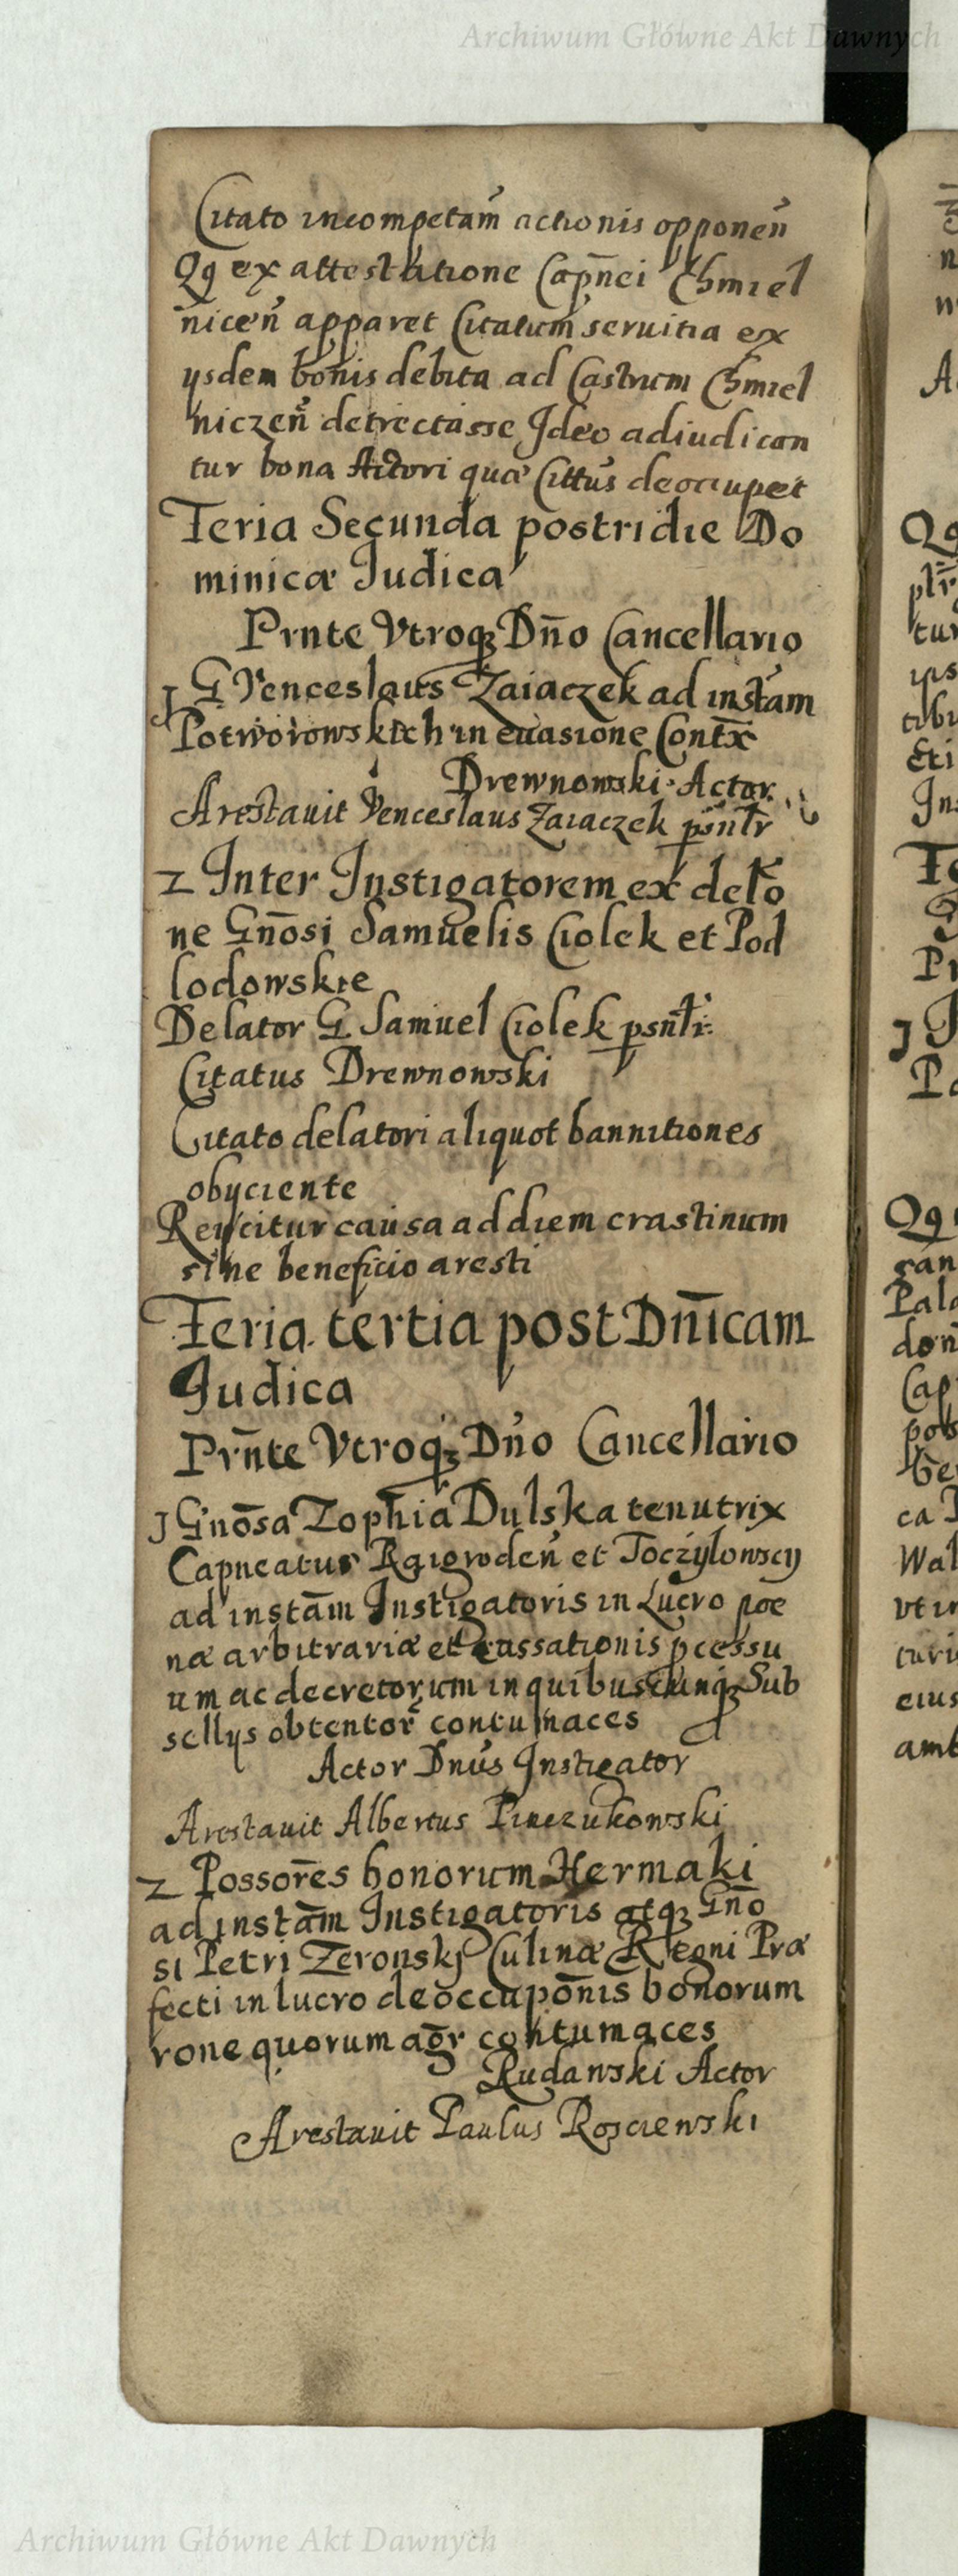 Archiwum Główne Akt Dawnych
Citato incompetam̃ actionis opponeñ
Qq ex attestatione Capn̄ei Chmiel
niceñ apparet Citatum seruitia ex
ijsdem bonis debita ad Castrum Chmiel
niczeñ detrectasse Ideo adiudican
tur bona Actori quæ Cittūs deoccupet
Feria Secunda postridie Do
minicæ Judica
Prnte Vtroqꝫ Dn̄o Cancellario
1 G Venceslaus Zaiaczek ad instam
Potworowskich in euasione Cont̄x
Drewnowski Actor
Arestauit Venceslaus Zaiaczek psnt̄r
2 Inter Instigatorem ex delõ
ne Gn̄osi Samuelis Ciolek et Pod
lodowskie
Delator G. Samuel Ciolek psnt̄r
Citatus Drewnowski
Citato delatori aliquot bannitiones
obijciente
Reijcitur causa ad diem crastinum
sine beneficio aresti
Feria tertia post Dn̄icam
Judica
Prn̄te Vtroqꝫ Dño Cancellario
1 Gnōsa Zophia Dulska tenutrix
Capneatus Raigrodeñ et Toczÿlowscÿ
ad instãm Instigatoris in Lucro poe
næ arbitrariæ et cassationis pcessu
um ac decretorum in quibuscunqꝫ Sub
sellijs obtentor̄ contumaces
Actor Dnūs Instigator
Arestauit Albertus
2 Possorēs bonorum Hermaki
ad instãm Instigatoris atqꝫ Gn̄o
si Petri Zeronskj Culinæ Regni Præ
fecti in lucro deoccupōnis bonorum
rone quorum agr̄ contumaces
Rudawski Actor
Arestauit Paulus Rosciewski
Archiwum Główne Akt Dawnych